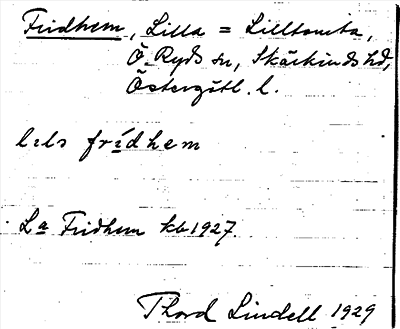 Fridhem, Lilla = Lilltomta,
Ö. Ryds sn, Skärkinds hd,
Östergötl. l.
lıls frídhem
La Fridhem kb 1927.
Thord Lindell 1929